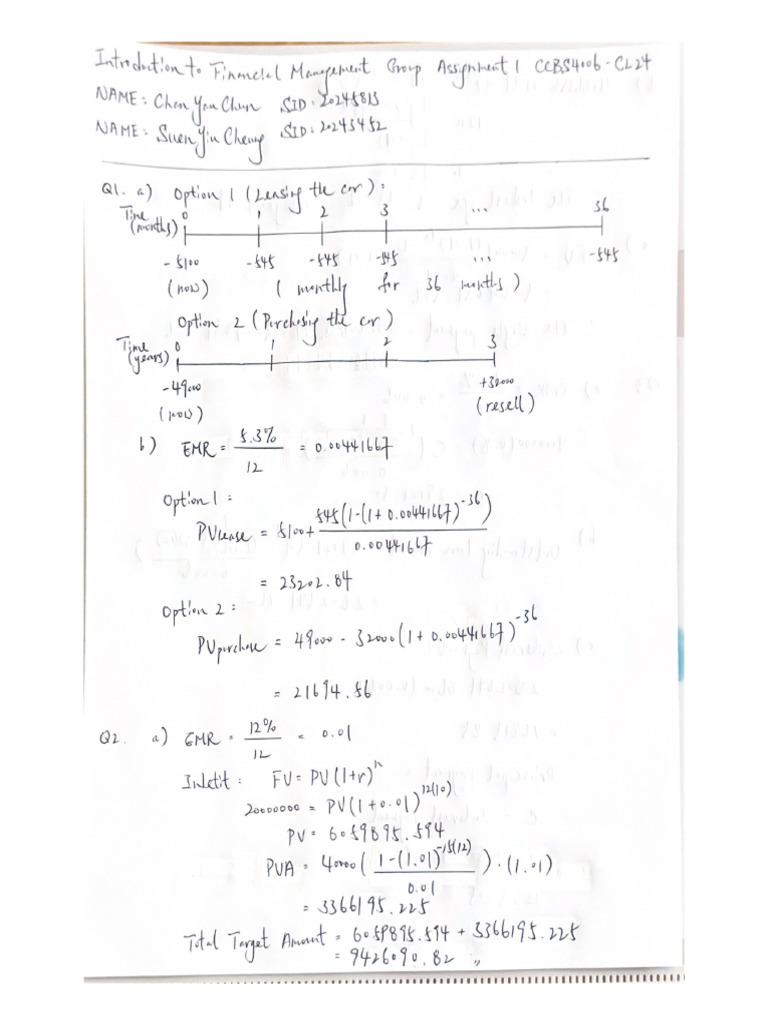 Introduction to Financial Management Group Assignment 1 CCBS4006-CL24
NAME: Chan Yan Chun SID: 20245815
NAME: Suen Yiu Cheung SID: 20243452
Q1. a) Option 1 (Leasing the car):
Time (months) 0 1 2 3 ... 36
-5100 -545 -545 -545 ... -545
(now) (monthly for 36 months)
Option 2 (Purchasing the car)
Time (years) 0 1 2 3
-49000 +32000
(now) (resell)
b) EMR = 5.3%/12 = 0.00441667
Option 1:
PVlease = 5100 + 545(1-(1+0.00441667)^-36)/0.00441667
= 23202.84
Option 2:
PVpurchase = 49000 - 32000(1+0.00441667)^-36
= 21694.56
Q2. a) EMR = 12%/12 = 0.01
FV = PV(1+r)^n
20000000 = PV(1+0.01)^12(10)
PV = 6059895.594
PVA = 40000(1-(1.01)^-15(12)/0.01)·(1.01)
= 3366195.225
Total Target Amount = 6059895.594 + 3366195.225
= 9426090.82 "